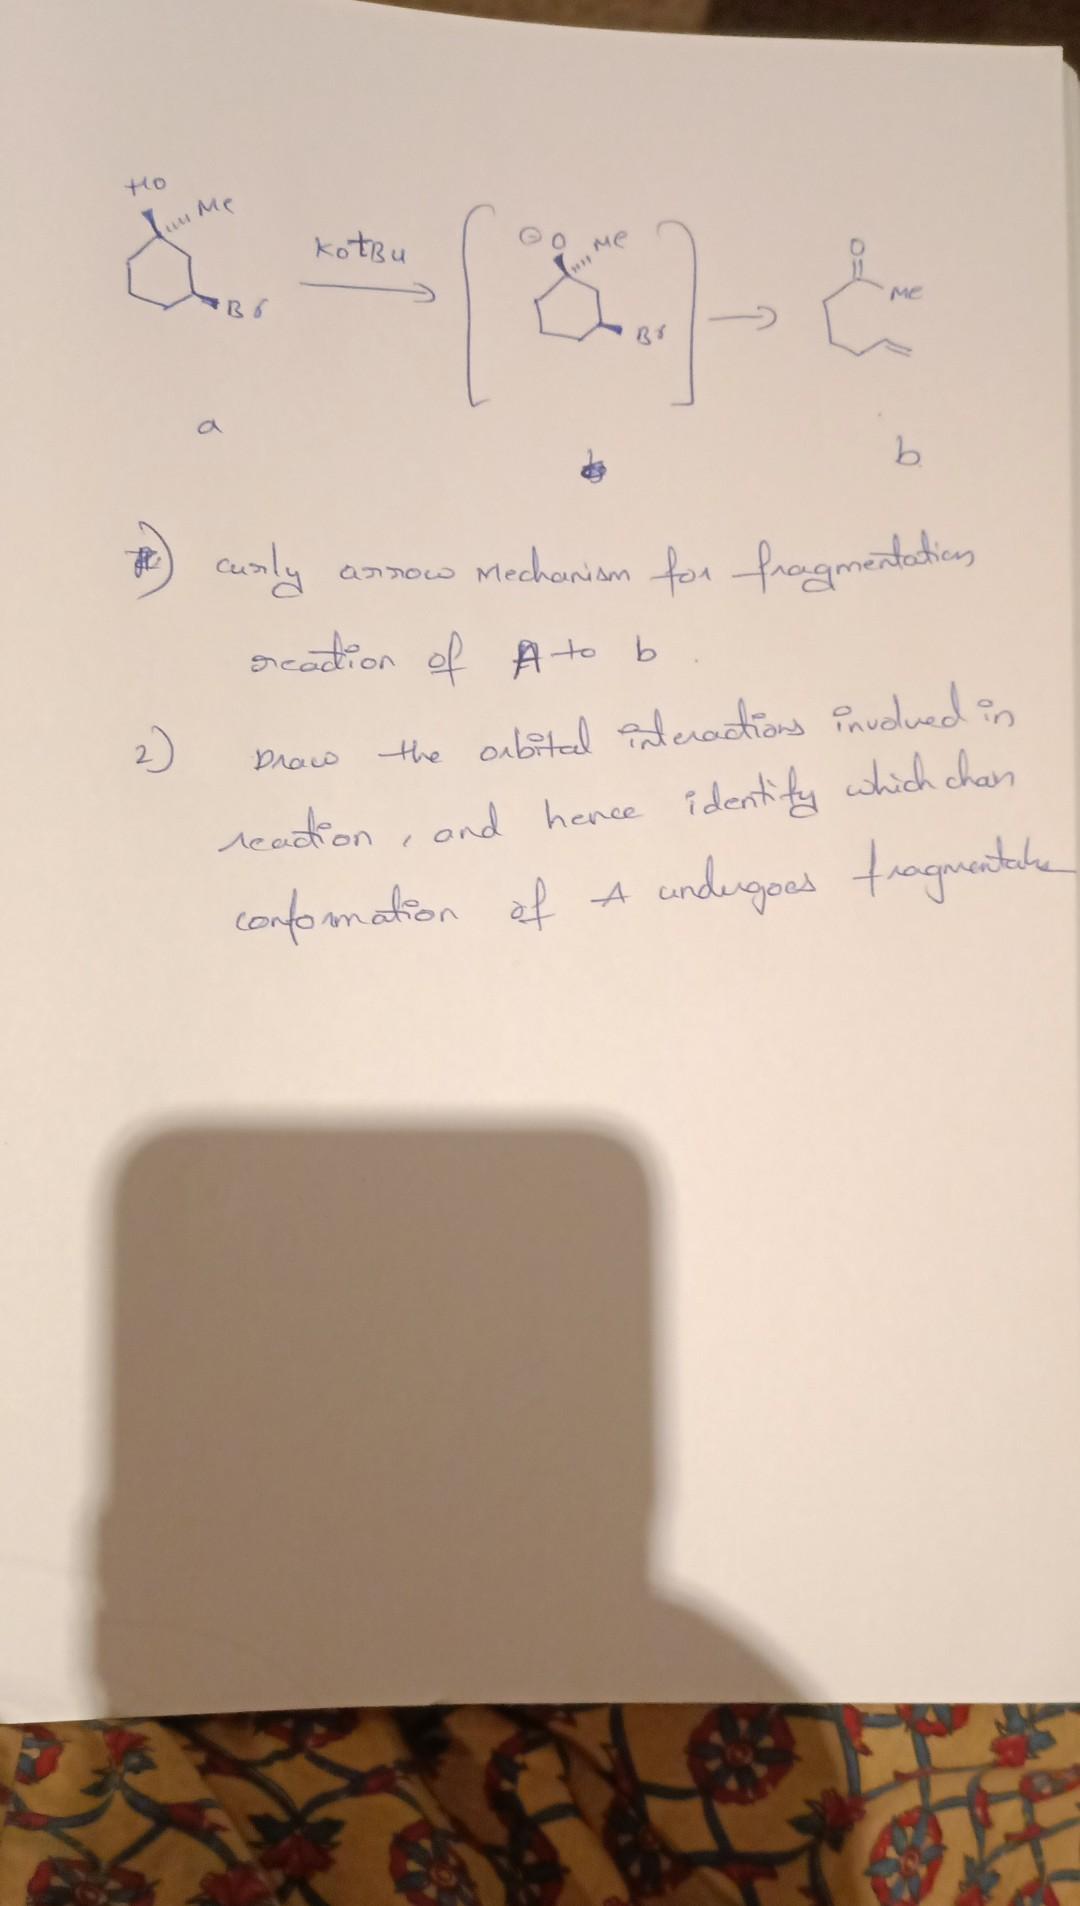 HO
Me
KOtBu
Br
⊖ O Me
Br
O
Me
a
b
b
curly arrow Mechanism for fragmentation
reaction of A to b.
2) Draw the orbital interactions involved in
reaction, and hence identify which chair
conformation of A undergoes fragmentatio